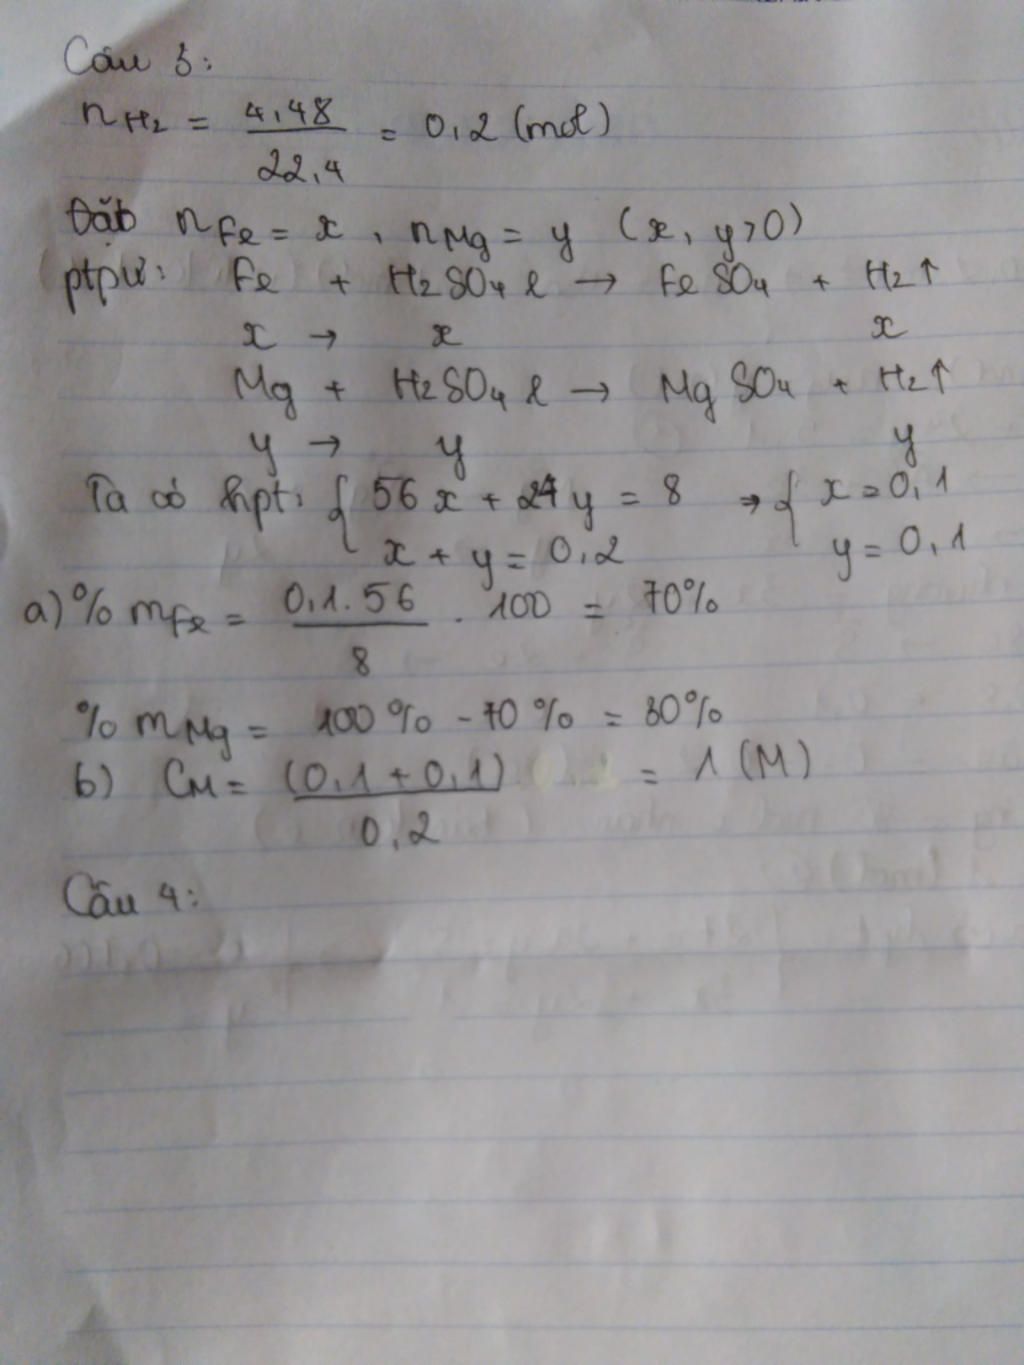 Câu 3:
n H2 = 4,48 / 22,4 = 0,2 (mol)
Đặt n Fe = x, n Mg = y (x, y > 0)
ptpư: Fe + H2SO4 l → FeSO4 + H2↑
x → x x
Mg + H2SO4 l → MgSO4 + H2↑
y → y y
Ta có hpt: { 56x + 24y = 8 => { x = 0,1
x + y = 0,2 y = 0,1
a) % m Fe = 0,1.56 / 8 . 100 = 70%
% m Mg = 100% - 70% = 30%
b) CM = (0,1 + 0,1) / 0,2 = 1 (M)
Câu 4: